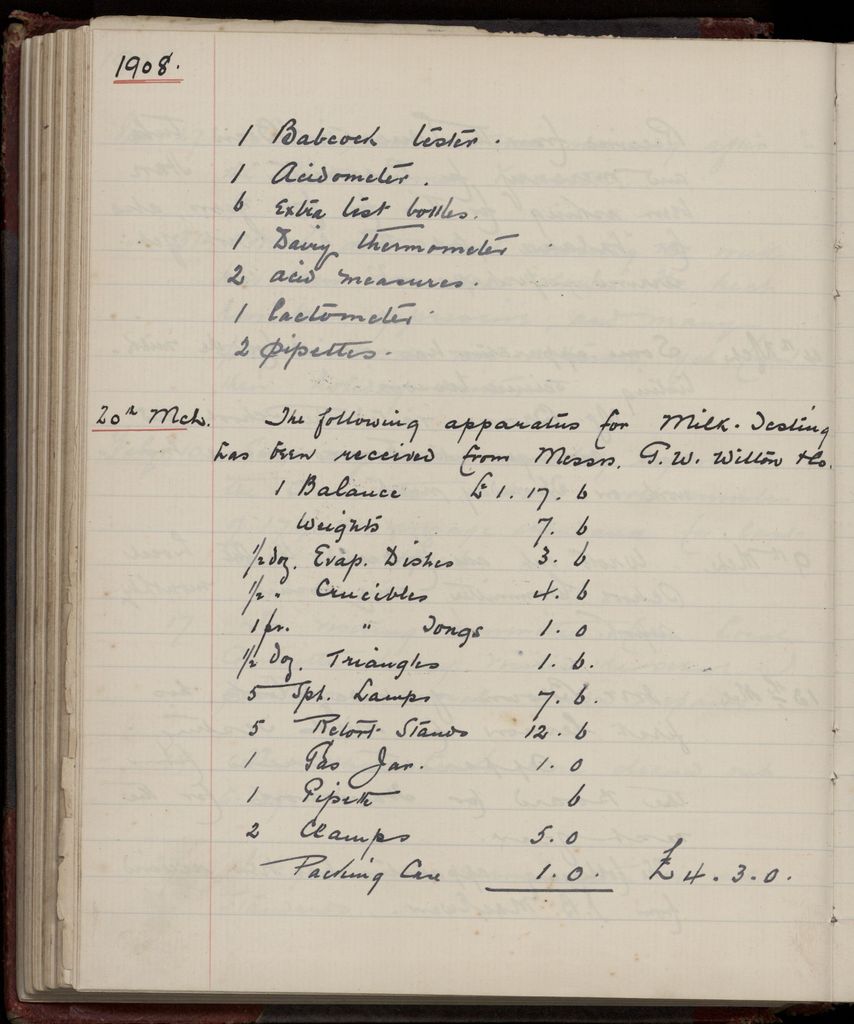 1908.
1 Babcock tester.
1 Acidometer.
6 Extra test bottles.
1 Dairy thermometer
2 acid measures.
1 lactometer
2 pipettes.
20th Mch. The following apparatus for Milk-Testing
has been received from Messrs. G. W. Wilton & Co.
1 Balance £1. 17. 6
Weights 7. 6
1/2 doz. Evap. Dishes 3. 6
1/2 " Crucibles 4. 6
1 pr. " Tongs 1. 0
1/2 Doz. Triangles 1. 6.
5 Spt. Lamps 7. 6.
5 Retort Stands 12. 6
1 Gas Jar. 1. 0
1 Pipette 6
2 Clamps 5. 0
Packing Case 1. 0. £4. 3. 0.